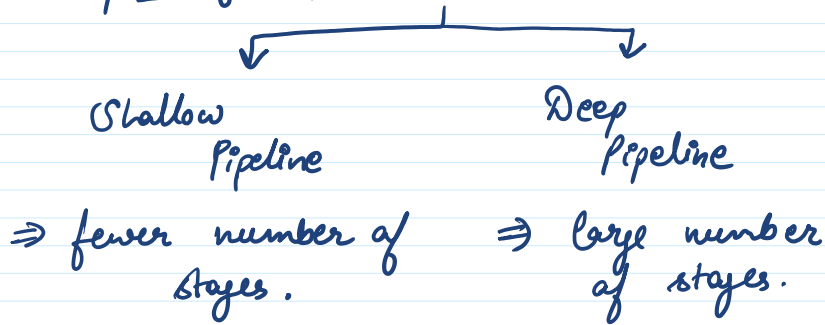 Shallow Pipeline
⇒ fewer number of stages.
Deep Pipeline
⇒ large number of stages.